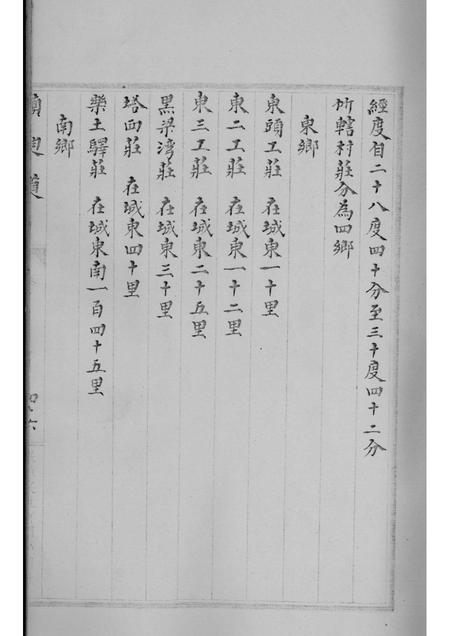 經度自二十八度四十分至三十度四十二分
所轄村莊分為四鄉
東鄉
東頭工莊 在城東一十里
東二工莊 在城東一十二里
東三工莊 在城東二十五里
黑梁湾莊 在城東三十里
塔西莊 在城東四十里
樂土驛莊 在城東南一百四十五里
南鄉